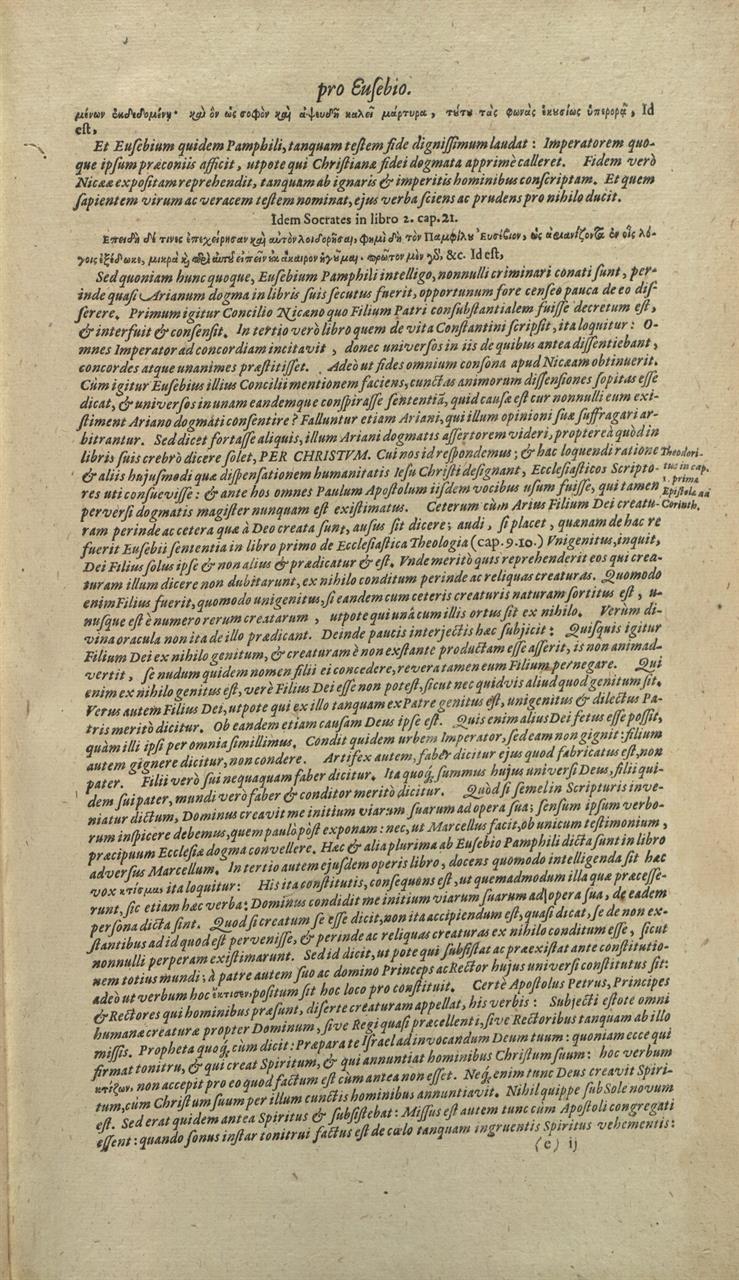 pro Eusebio.
μένων ἐκδεδομένην· καὶ ὃν ὡς σοφὸν καὶ ἀψευδῆ καλεῖ μάρτυρα, τούτου τὰς φωνὰς ἑκουσίως ὑπερορᾷ, Id
est,
Et Eusebium quidem Pamphili, tanquam testem fide dignissimum laudat: Imperatorem quo-
que ipsum præconiis afficit, utpote qui Christianæ fidei dogmata apprimè calleret. Fidem verò
Nicææ expositam reprehendit, tanquam ab ignaris & imperitis hominibus conscriptam. Et quem
sapientem virum ac veracem testem nominat, ejus verba sciens ac prudens pro nihilo ducit.
Idem Socrates in libro 2. cap. 21.
Ἐπειδὴ δέ τινες ἐπεχείρησαν καὶ αὐτὸν λοιδορῆσαι, φημὶ δὴ τὸν Παμφίλου Ἐυσέβιον, ὡς ἀρειανίζοντα ἐν οἷς λό-
γοις ἐξέδωκε, μικρὰ καὶ περὶ αὐτοῦ εἰπεῖν οὐκ ἄκαιρον ἡγοῦμαι. πρῶτον μὲν γὰρ, &c. Id est,
Sed quoniam hunc quoque, Eusebium Pamphili intelligo, nonnulli criminari conati sunt, per-
inde quasi Arianum dogma in libris suis secutus fuerit, opportunum fore censeo pauca de eo dis-
serere. Primum igitur Concilio Nicæno quo Filium Patri consubstantialem fuisse decretum est,
& interfuit & consensit. In tertio verò libro quem de vita Constantini scripsit, ita loquitur: O-
mnes Imperator ad concordiam incitavit, donec universos in iis de quibus antea dissentiebant,
concordes atque unanimes præstitisset. Adeò ut fides omnium consona apud Nicæam obtinuerit.
Cùm igitur Eusebius illius Concilii mentionem faciens, cunctas animorum dissensiones sopitas esse
dicat, & universos in unam eandemque conspirasse sententiā, quid causæ est cur nonnulli eum exi-
stiment Ariano dogmati consentire? Falluntur etiam Ariani, qui illum opinioni suæ suffragari ar-
bitrantur. Sed dicet fortasse aliquis, illum Ariani dogmatis assertorem videri, propterea quòd in
libris suis crebrò dicere solet, PER CHRISTVM. Cui nos id respondemus; & hac loquendi ratione
& aliis hujusmodi quæ dispensationem humanitatis Iesu Christi designant, Ecclesiasticos Scripto-
res uti consuevisse: & ante hos omnes Paulum Apostolum iisdem vocibus usum fuisse, qui tamen
perversi dogmatis magister nunquam est existimatus. Ceterum cùm Arius Filium Dei creatu-
Theodori-
tus in cap.
1. prima
Epistola ad
Corinth.
ram perinde ac cetera quæ à Deo creata sunt, ausus sit dicere; audi, si placet, quænam de hac re
fuerit Eusebii sententia in libro primo de Ecclesiastica Theologia (cap. 9. 10.) Vnigenitus, inquit,
Dei Filius solus ipse & non alius & prædicatur & est. Vnde meritò quis reprehenderit eos qui crea-
turam illum dicere non dubitarunt, ex nihilo conditum perinde ac reliquas creaturas. Quomodo
enim Filius fuerit, quomodo unigenitus, si eandem cum ceteris creaturis naturam sortitus est, u-
nusque est è numero rerum creatarum, utpote qui unà cum illis ortus sit ex nihilo. Verùm di-
vina oracula non ita de illo prædicant. Deinde paucis interjectis hæc subjicit: Quisquis igitur
Filium Dei ex nihilo genitum, & creaturam è non exstante productam esse asserit, is non animad-
vertit, se nudum quidem nomen filii ei concedere, revera tamen eum Filium pernegare. Qui
enim ex nihilo genitus est, verè Filius Dei esse non potest, sicut nec quidvis aliud quod genitum sit.
Verus autem Filius Dei, utpote qui ex illo tanquam ex Patre genitus est, unigenitus & dilectus Pa-
tris meritò dicitur. Ob eandem etiam causam Deus ipse est. Quis enim alius Dei fetus esse possit,
quàm illi ipsi per omnia simillimus. Condit quidem urbem Imperator, sed eam non gignit: filium
autem gignere dicitur, non condere. Artifex autem, faber dicitur ejus quod fabricatus est, non
pater. Filii verò sui nequaquam faber dicitur. Ita quoq; summus hujus universi Deus, filii qui-
dem sui pater, mundi verò faber & conditor meritò dicitur. Quòd si semel in Scripturis inve-
niatur dictum, Dominus creavit me initium viarum suarum ad opera sua; sensum ipsum verbo-
rum inspicere debemus, quem paulò pòst exponam: nec, ut Marcellus facit, ob unicum testimonium,
præcipuum Ecclesiæ dogma convellere. Hæc & alia plurima ab Eusebio Pamphili dicta sunt in libro
adversus Marcellum. In tertio autem ejusdem operis libro, docens quomodo intelligenda sit hæc
vox κτίσμα, ita loquitur: His ita constitutis, consequens est, ut quemadmodum illa quæ præcesse-
runt, sic etiam hæc verba: Dominus condidit me initium viarum suarum ad opera sua, de eadem
persona dicta sint. Quod si creatum se esse dicit, non ita accipiendum est, quasi dicat, se de non ex-
stantibus ad id quod est pervenisse, & perinde ac reliquas creaturas ex nihilo conditum esse, sicut
nonnulli perperam existimarunt. Sed id dicit, ut pote qui subsistat ac præexistat ante constitutio-
nem totius mundi; à patre autem suo ac domino Princeps ac Rector hujus universi constitutus sit:
adeò ut verbum hoc ἔκτισεν, positum sit hoc loco pro constituit. Certè Apostolus Petrus, Principes
& Rectores qui hominibus præsunt, disertè creaturam appellat, his verbis: Subjecti estote omni
humanæ creaturæ propter Dominum, sive Regi quasi præcellenti, sive Rectoribus tanquam ab illo
missis. Propheta quoq; cùm dicit: Præpara te Israel ad invocandum Deum tuum: quoniam ecce qui
firmat tonitru, & qui creat Spiritum, & qui annuntiat hominibus Christum suum: hoc verbum
κτίζων, non accepit pro eo quod factum est cùm antea non esset. Neq; enim tunc Deus creavit Spiri-
tum, cùm Christum suum per illum cunctis hominibus annuntiavit. Nihil quippe sub Sole novum
est. Sed erat quidem antea Spiritus & subsistebat: Missus est autem tunc cùm Apostoli congregati
essent: quando sonus instar tonitrui factus est de cœlo tanquam ingruentis Spiritus vehementis:
(e) ij